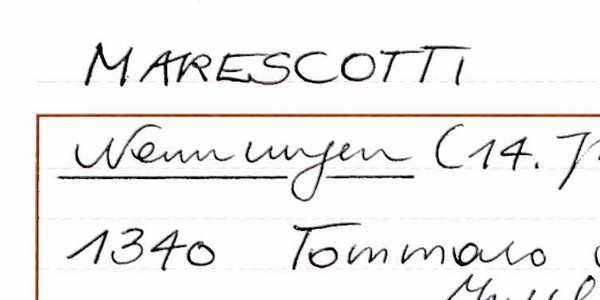 MARESCOTTI
Nennungen (14. J
1340 Tommaso